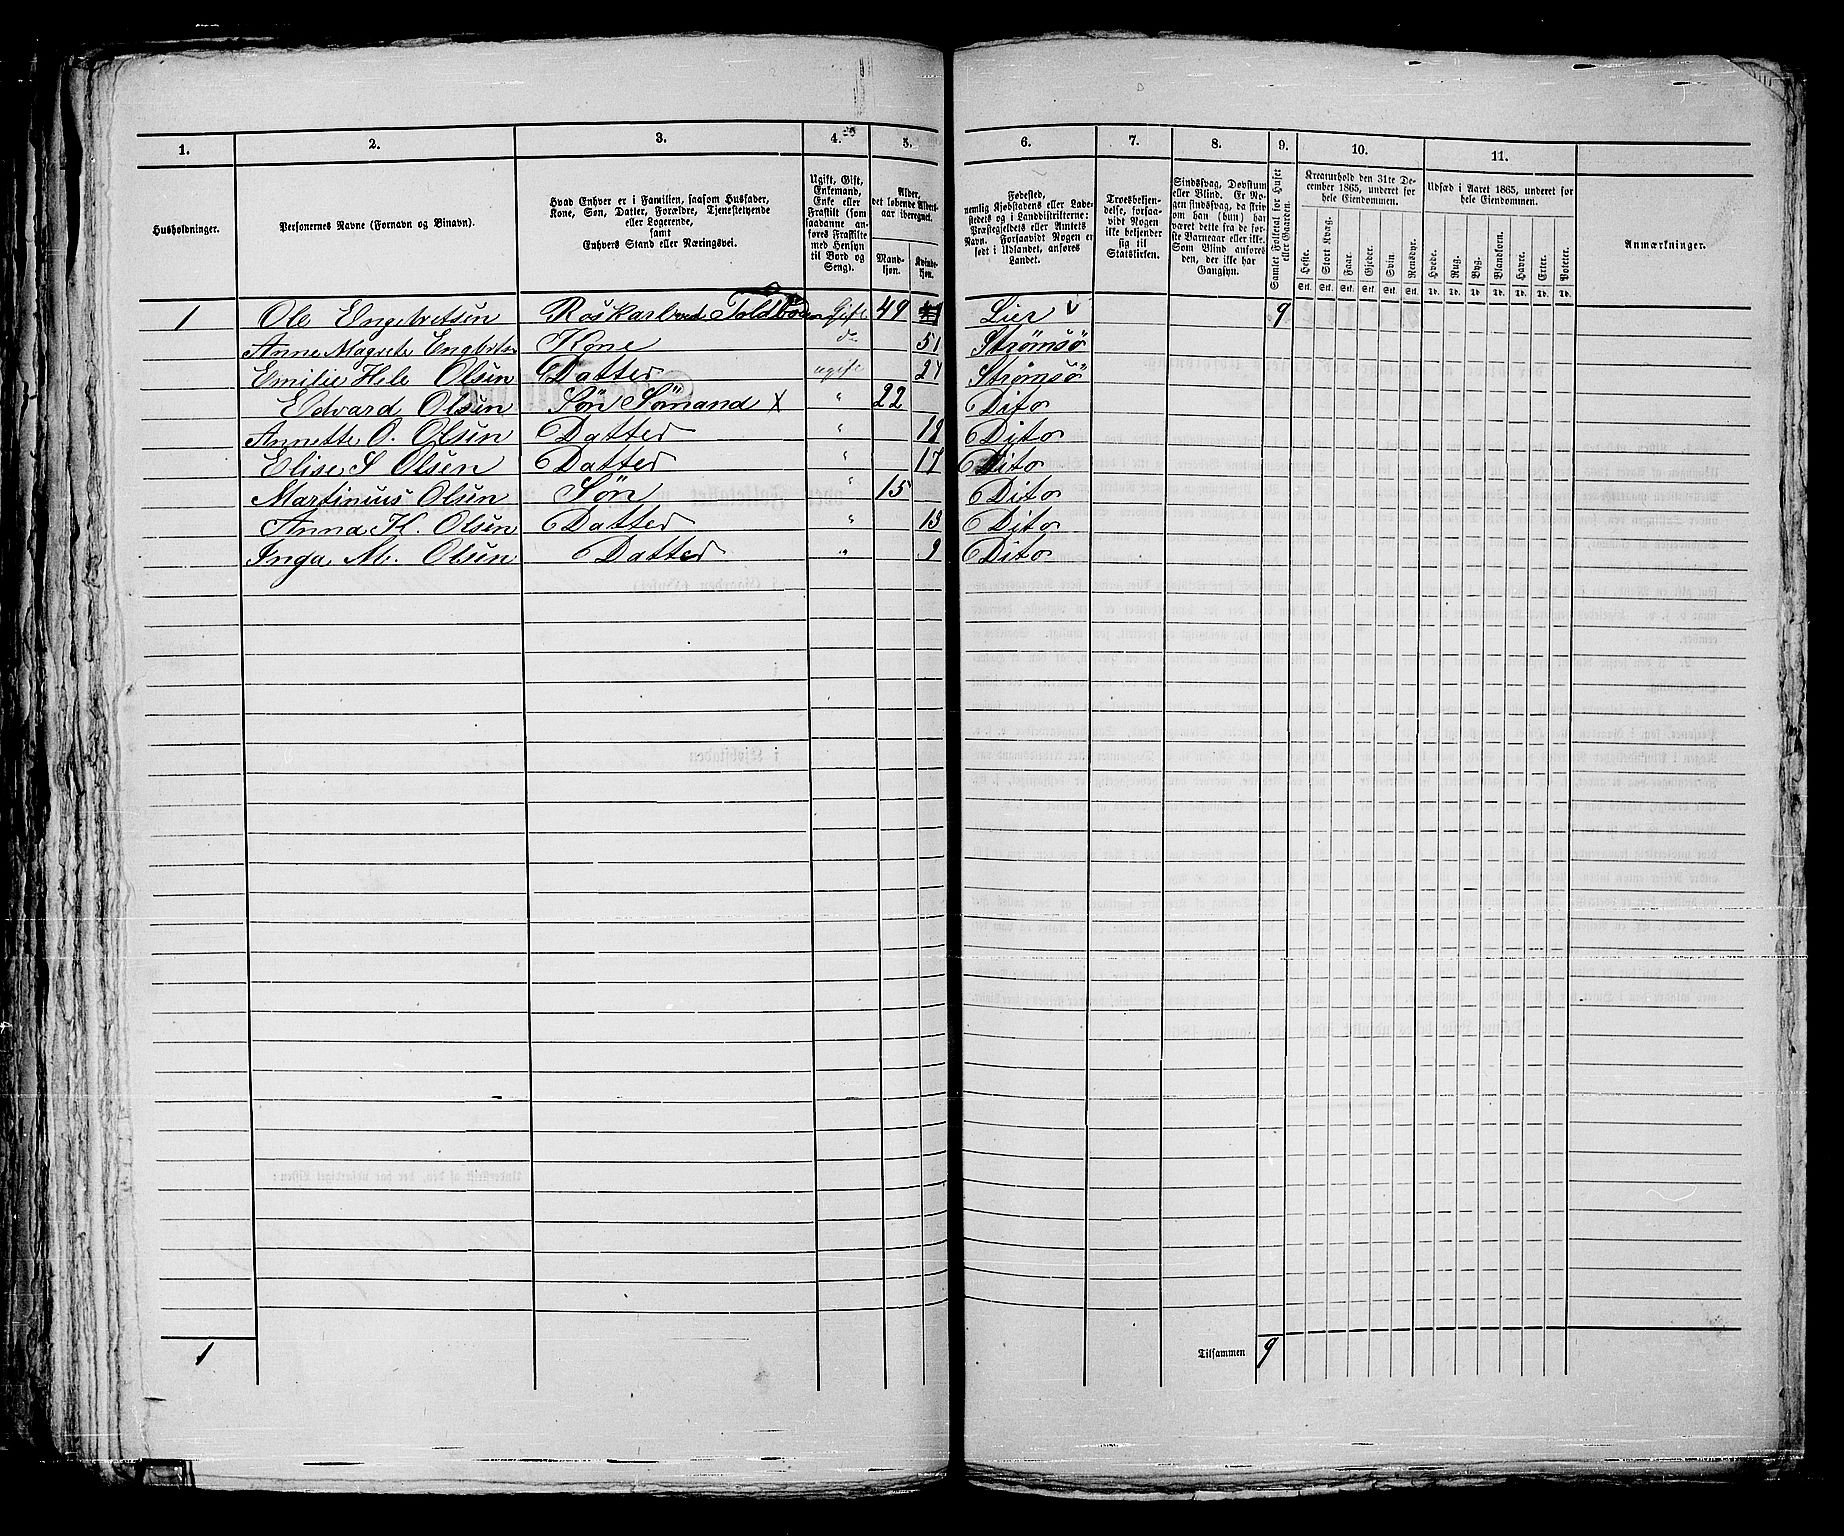 1. 2. 3. 4. 5. 6. 7. 8. 9. 10. 11.
Husholdninger.
Personernes Navne (Fornavn og Binavn).
Hvad Enhver er i Familien, saasom Husfader,
Kone, Søn, Datter, Forældre, Tjenestetyende
eller Logerende,
samt
Enhvers Stand eller Næringsvei.
Ugift, Gift,
Enkemand,
Enke eller
Fraskilt (som
saadanne an-
føres Fraskilte
med Hensyn
til Bord og
Seng).
Alder,
det løbende Alders-
aar iberegnet.
Mand-
kjøn.
Kvinde-
kjøn.
Fødested,
nemlig Kjøbstadens eller Lade-
stedets og i Landdistrikterne:
Præstegjeldets eller Annexets
Navn. Forsaavidt Nogen er
født i Udlandet, anføres
Landet.
Troesbekjen-
delse, forsaa-
vidt Nogen
ikke bekjender
sig til
Statskirken.
Sindssvag, Døvstum
eller Blind. Er No-
gen sindssvag, da skriv
om han (hun) har
været dette fra de før-
ste Barneaar eller ikke.
Som Blind anføres
den, der ikke har
Gangsyn.
Samlet Folketal for Huset
eller Gaarden.
Kreaturhold den 31te De-
cember 1865, underet for
hele Eiendommen.
Heste. Stort Kvæg. Faar. Gjeder. Svin. Rensdyr.
Stk. Stk. Stk. Stk. Stk. Stk.
Udsæd i Aaret 1865, underet for
hele Eiendommen.
Hvede. Rug. Byg. Blandkorn. Havre. Erter. Poteter.
Td. Td. Td. Td. Td. Td. Td.
Anmærkninger.
1 Ole Engebretsen Roskarl ved Toldboden Gift 49 Lier 9
Anne Magrete Kone do 51 Strømsö
Emilie Hele Olsen Datter ugift 27 Strømsö
Edvard Olsen Søn Sømand X " 22 Dito
Annette O. Olsen Datter " 19 Dito
Elise S Olsen Datter " 17 Dito
Martinius Olsen Søn " 15 Dito
Anna K. Olsen Datter " 13 Dito
Inga M. Olsen Datter " 9 Dito
1 Tilsammen 9